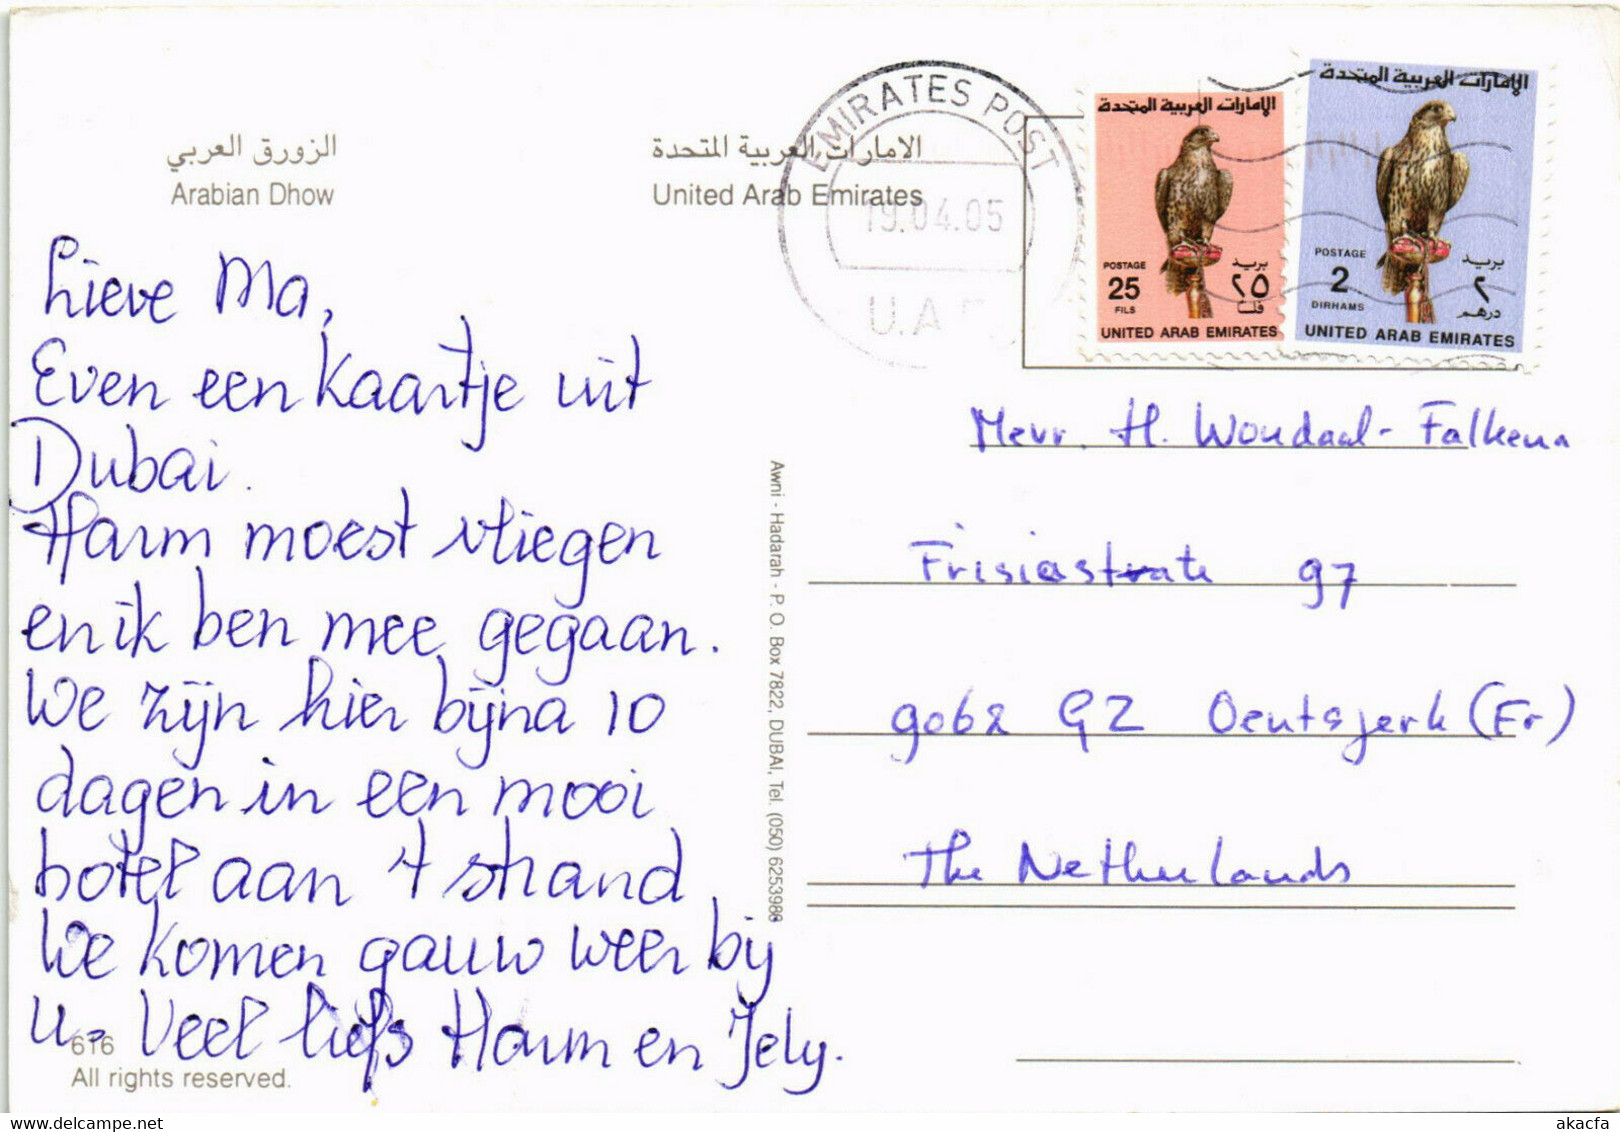 الزورق العربي
Arabian Dhow
الامارات العربية المتحدة
United Arab Emirates
EMIRATES POST
19.04.05
U.A
الإمارات العربية المتحدة
POSTAGE بريد
25 ٢٥
FILS فلس
UNITED ARAB EMIRATES
الإمارات العربية المتحدة
POSTAGE بريد
2 ٢
DIRHAMS درهم
UNITED ARAB EMIRATES
Lieve Ma,
Even een kaartje uit
Dubai.
Harm moest vliegen
en ik ben mee gegaan.
We zijn hier bijna 10
dagen in een mooi
hotel aan 't strand
We komen gauw weer bij
u. Veel liefs Harm en Jely.
Awni - Hadarah - P. O. Box 7822, DUBAI, Tel. (050) 6253988
Mevr. H. Woudaal - Falkena
Frisiastrate 97
9062 GZ Oentsjerk (Fr)
The Netherlands
616
All rights reserved.
www.delcampe.net
akacfa